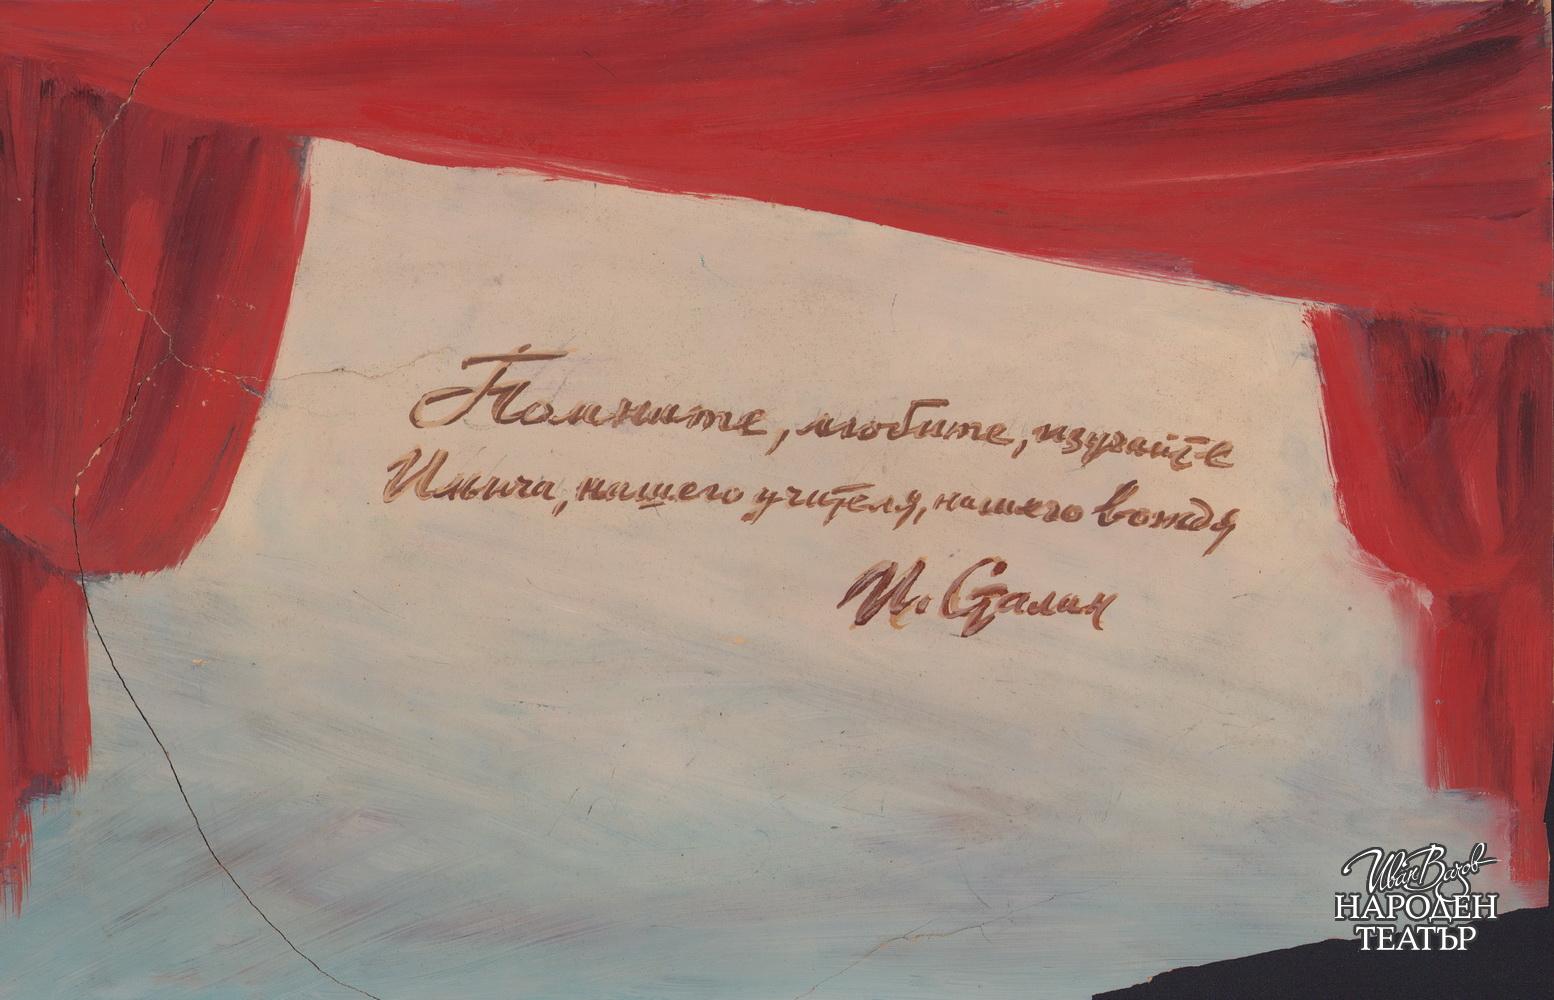 Помните, любите, изучайте
Ильича, нашего учителя, нашего вождя
И. Сталин
Иван Вазов
НАРОДЕН
ТЕАТЪР